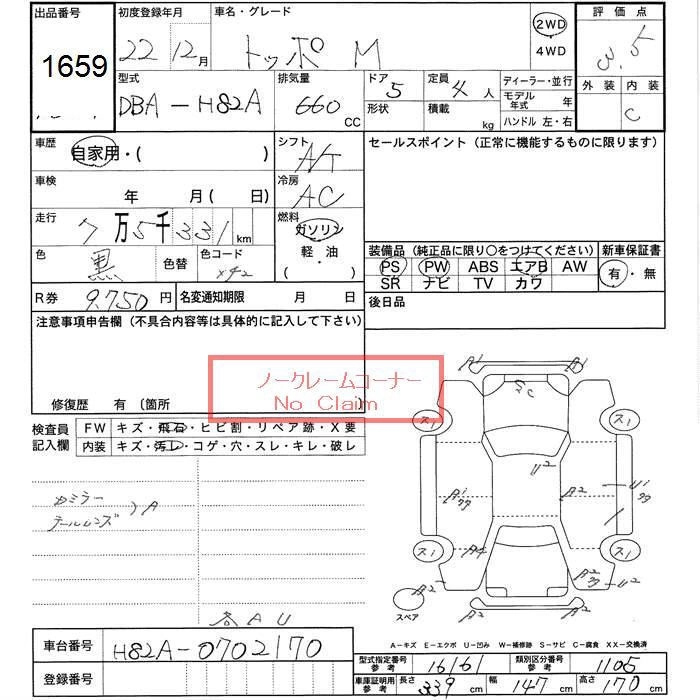 出品番号
1659
初度登録年月
22 12月
車名・グレード
トッポ M
2WD
4WD
評価点
3.5
外装 内装
C
型式
DBA-H82A
排気量
660 CC
ドア 5
形状
定員 4 人
積載 kg
ディーラー・並行
モデル年式 年
ハンドル 左・右
車歴
自家用・( )
シフト
A/T
セールスポイント (正常に機能するものに限ります)
車検
年 月( 日)
冷房
AC
走行
7万5千331km
燃料
ガソリン
軽・油
( )
色
黒
色替
色コード
X42
装備品 (純正品に限り○をつけてください)
PS PW ABS エアB AW
SR ナビ TV カワ
新車保証書
有・無
R券 9,750円
名変通知期限 月 日
後日品
注意事項申告欄 (不具合内容等は具体的に記入して下さい)
修復歴 有 〔箇所
ノークレームコーナー
No Claim
検査員記入欄
FW キズ・飛石・ヒビ割・リペア跡・X要
内装 キズ・汚レ・コゲ・穴・スレ・キレ・破レ
カミラー
テールレンズ
) A
各AU
A1
A1
スc
ス1
ス1
U2
A1
77
A2
U1
77
ス1
ス1
A4
A2
A2
77
U2
A2
A2
スペア
A-キズ E-エクボ U-凹み W-補修跡 S-サビ C-腐食 XX-交換済
車台番号
H82A-0702170
登録番号
型式指定番号 参考 16161
類別区分番号 参考 1105
車庫証明用 参考 長さ 339 cm 幅 147 cm 高さ 170 cm